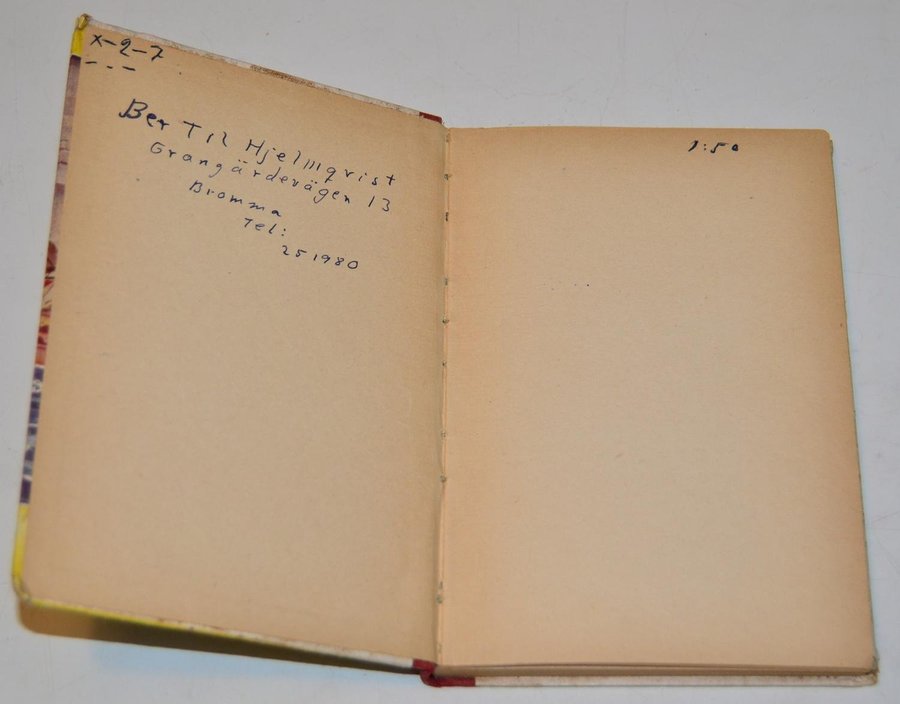 x-2-7
- - -
BerTil Hjelmqvist
Grangärdevägen 13
Bromma
Tel:
251980
1:50